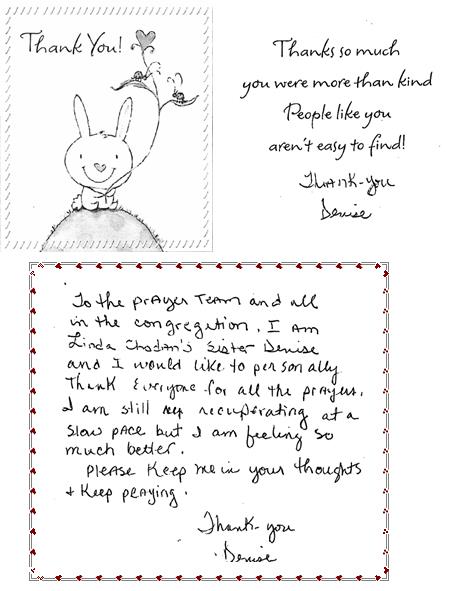 Thank You!
Thanks so much
you were more than kind
People like you
aren't easy to find!
Thank-you
Denise
To the prayer Team and all
in the congregation. I Am
Linda Chodan's Sister Denise
and I would like to personally
Thank Everyone for all the prayers.
I am still recuperating at a
slow pace but I am feeling so
much better.
Please Keep me in your thoughts
+ Keep praying.
Thank-you
Denise